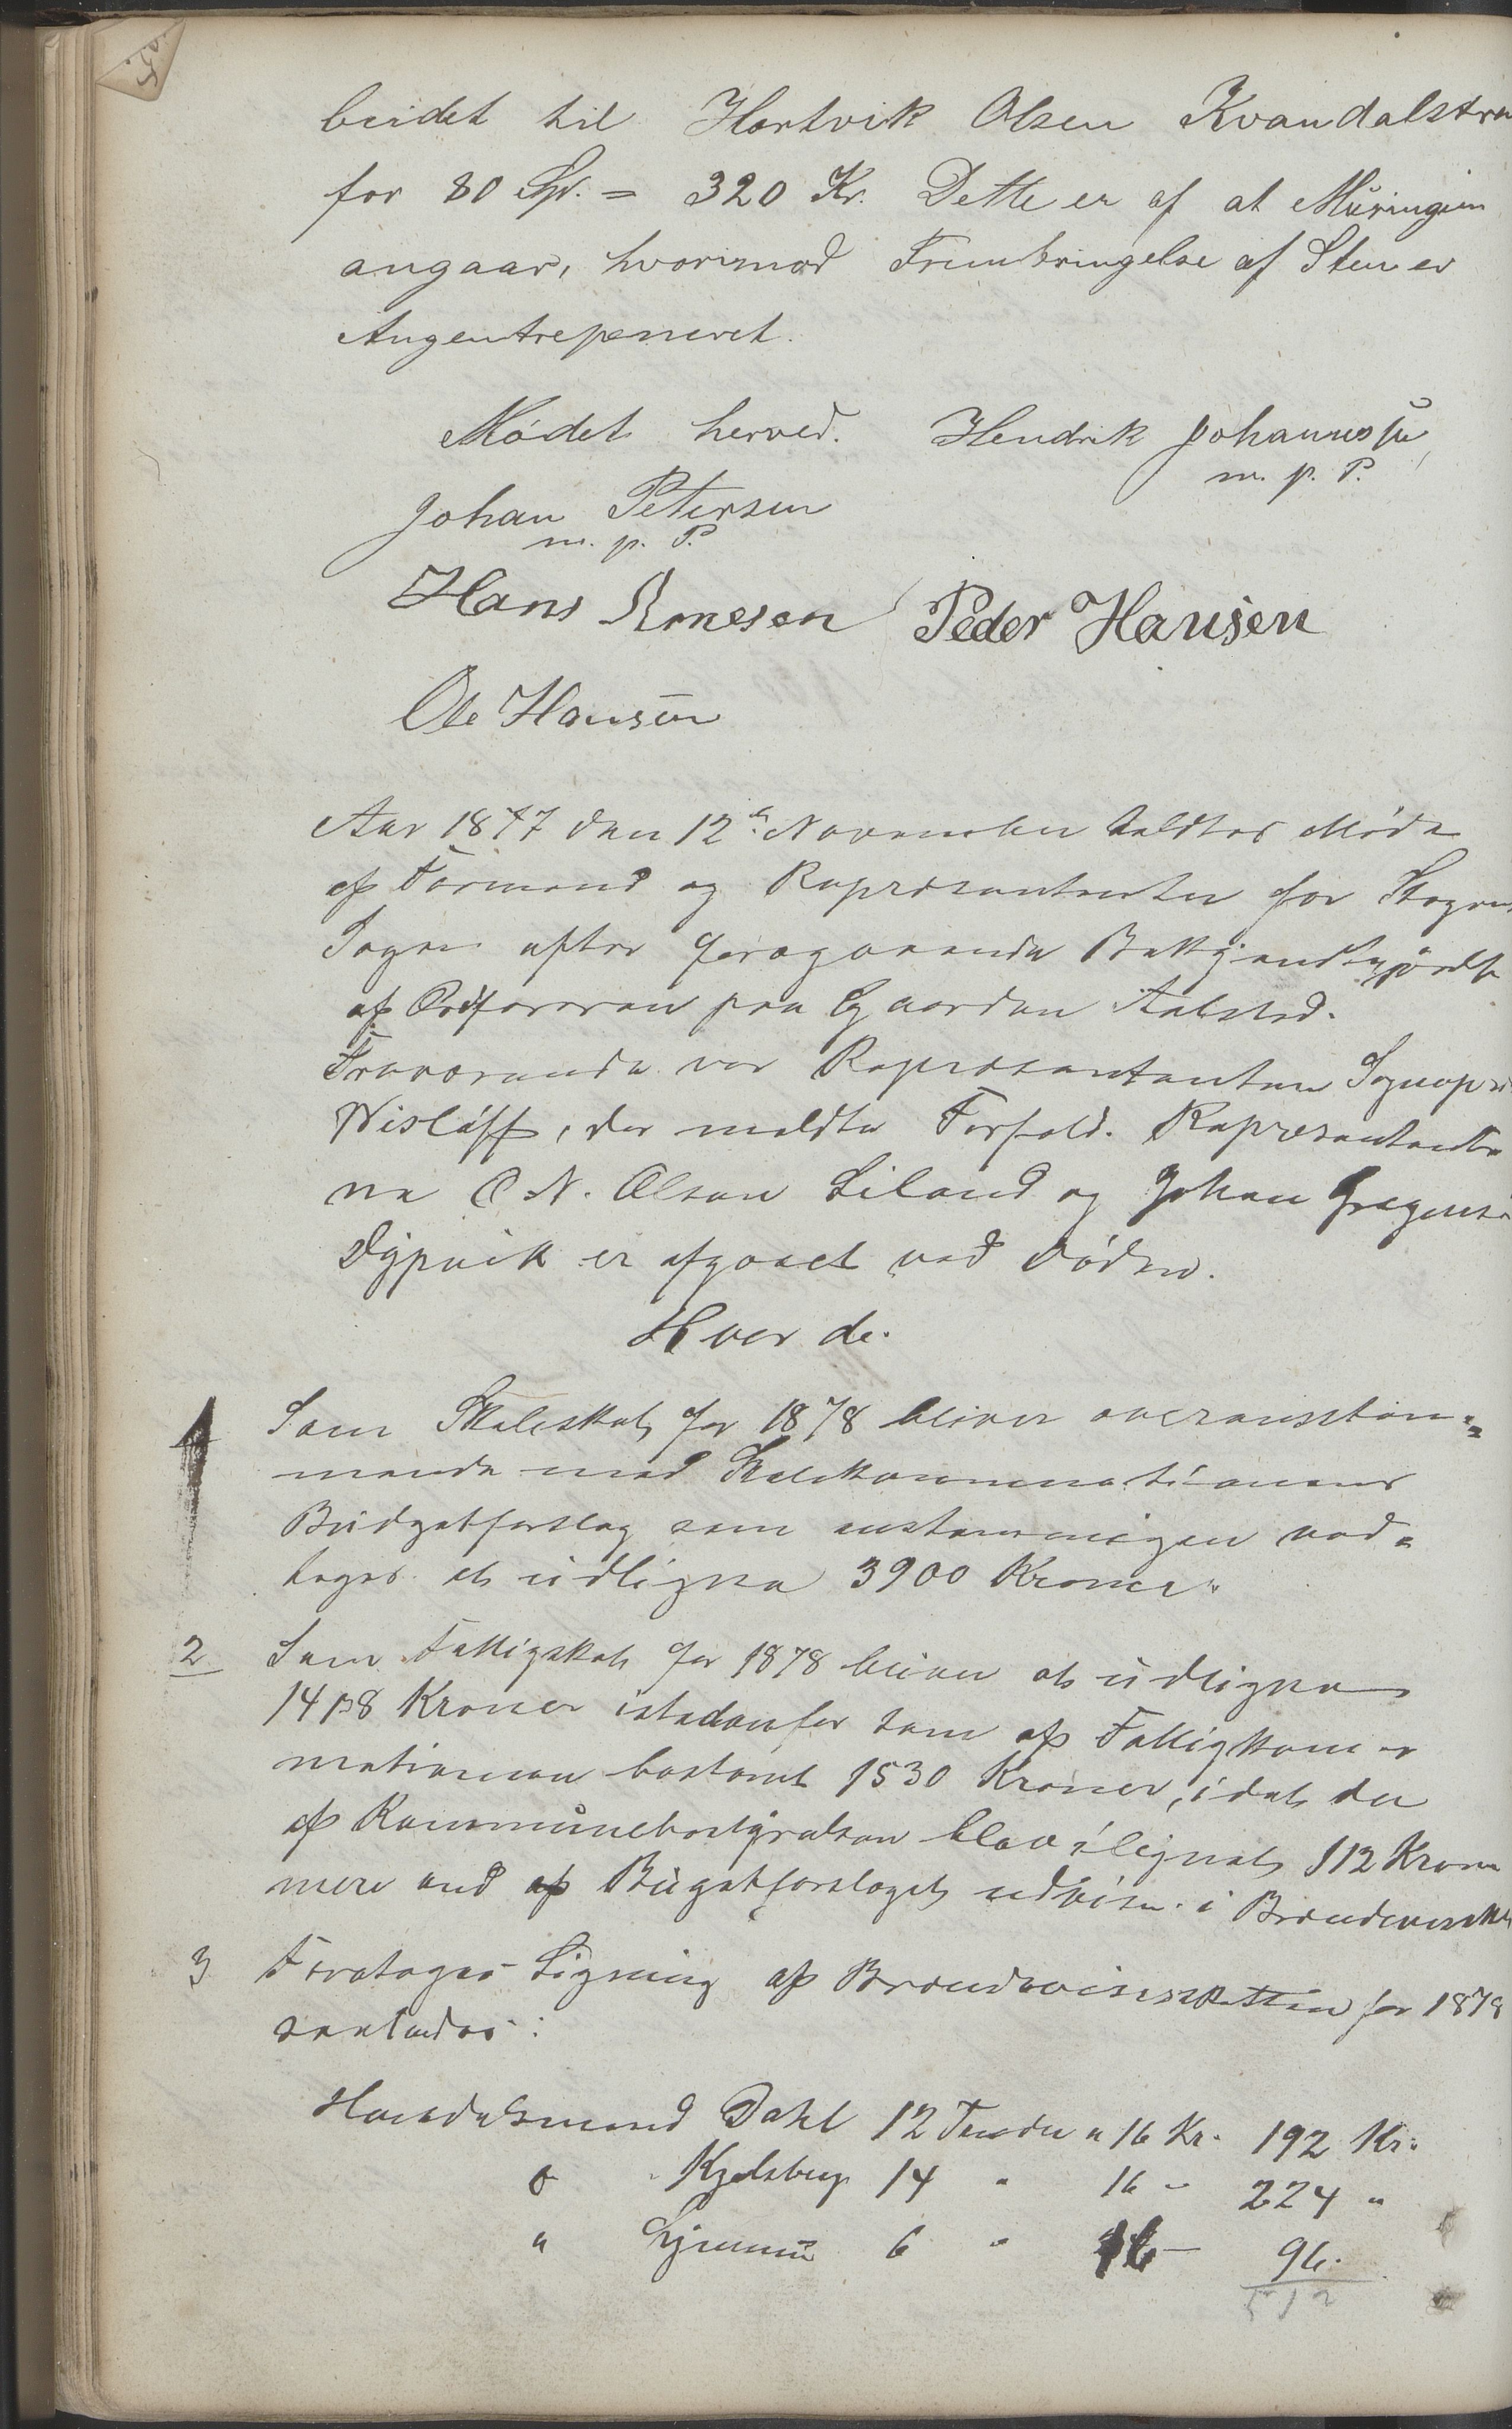 beidet til Hartvik Olsen Kvandalstra
for 80 Spd. = 320 Kr. Dette er af at Muringen
angaar, hvorimod Frembringelse af Sten er
Mødet hæved. Hendrik Johannessen
m. p. P.
Johan Petersen
m. p. P.
Hans Arnesen Peder Hansen
Ole Hansen
Aar 1877 den 12te November holdtes Møde
af Formænd og Repræsentanter for
Sogn efter foregaaende Bekjendtgjørelse
af Ordføreren paa Gaarden Aalstad.
Fraværende var Repræsentanten Sognepr
Wisløff, der meldte Forfald. Repræsentante
ne O N. Olsen Liland og Johan
Dypvik er afgaaet ved Døden.
Hver de.
1 Som Skoleskat for 1878 bliver overensstem-
mende med Skolekommissionens
Budgetforslag som enstemmigen ved-
toges at udligne 3900 Kroner.
2 Som Fattigskat for 1878 bliver at udligne
1418 Kroner istedenfor som af Fattigkom-
missionen bestemt 1530 Kroner, idet der
af Kommunebestyrelsen blev ilignet 112 Kroner
mere end af Bugetforslaget udviser i
3 Foretoges Ligning af Brændevinsskatten for 1878
saaledes:
Handelsmand Dahl 12 Tønder a 16 Kr. 192 Kr.
" Kjelsberg 14 " 16 - 224 "
" 6 " 16 - 96.
512